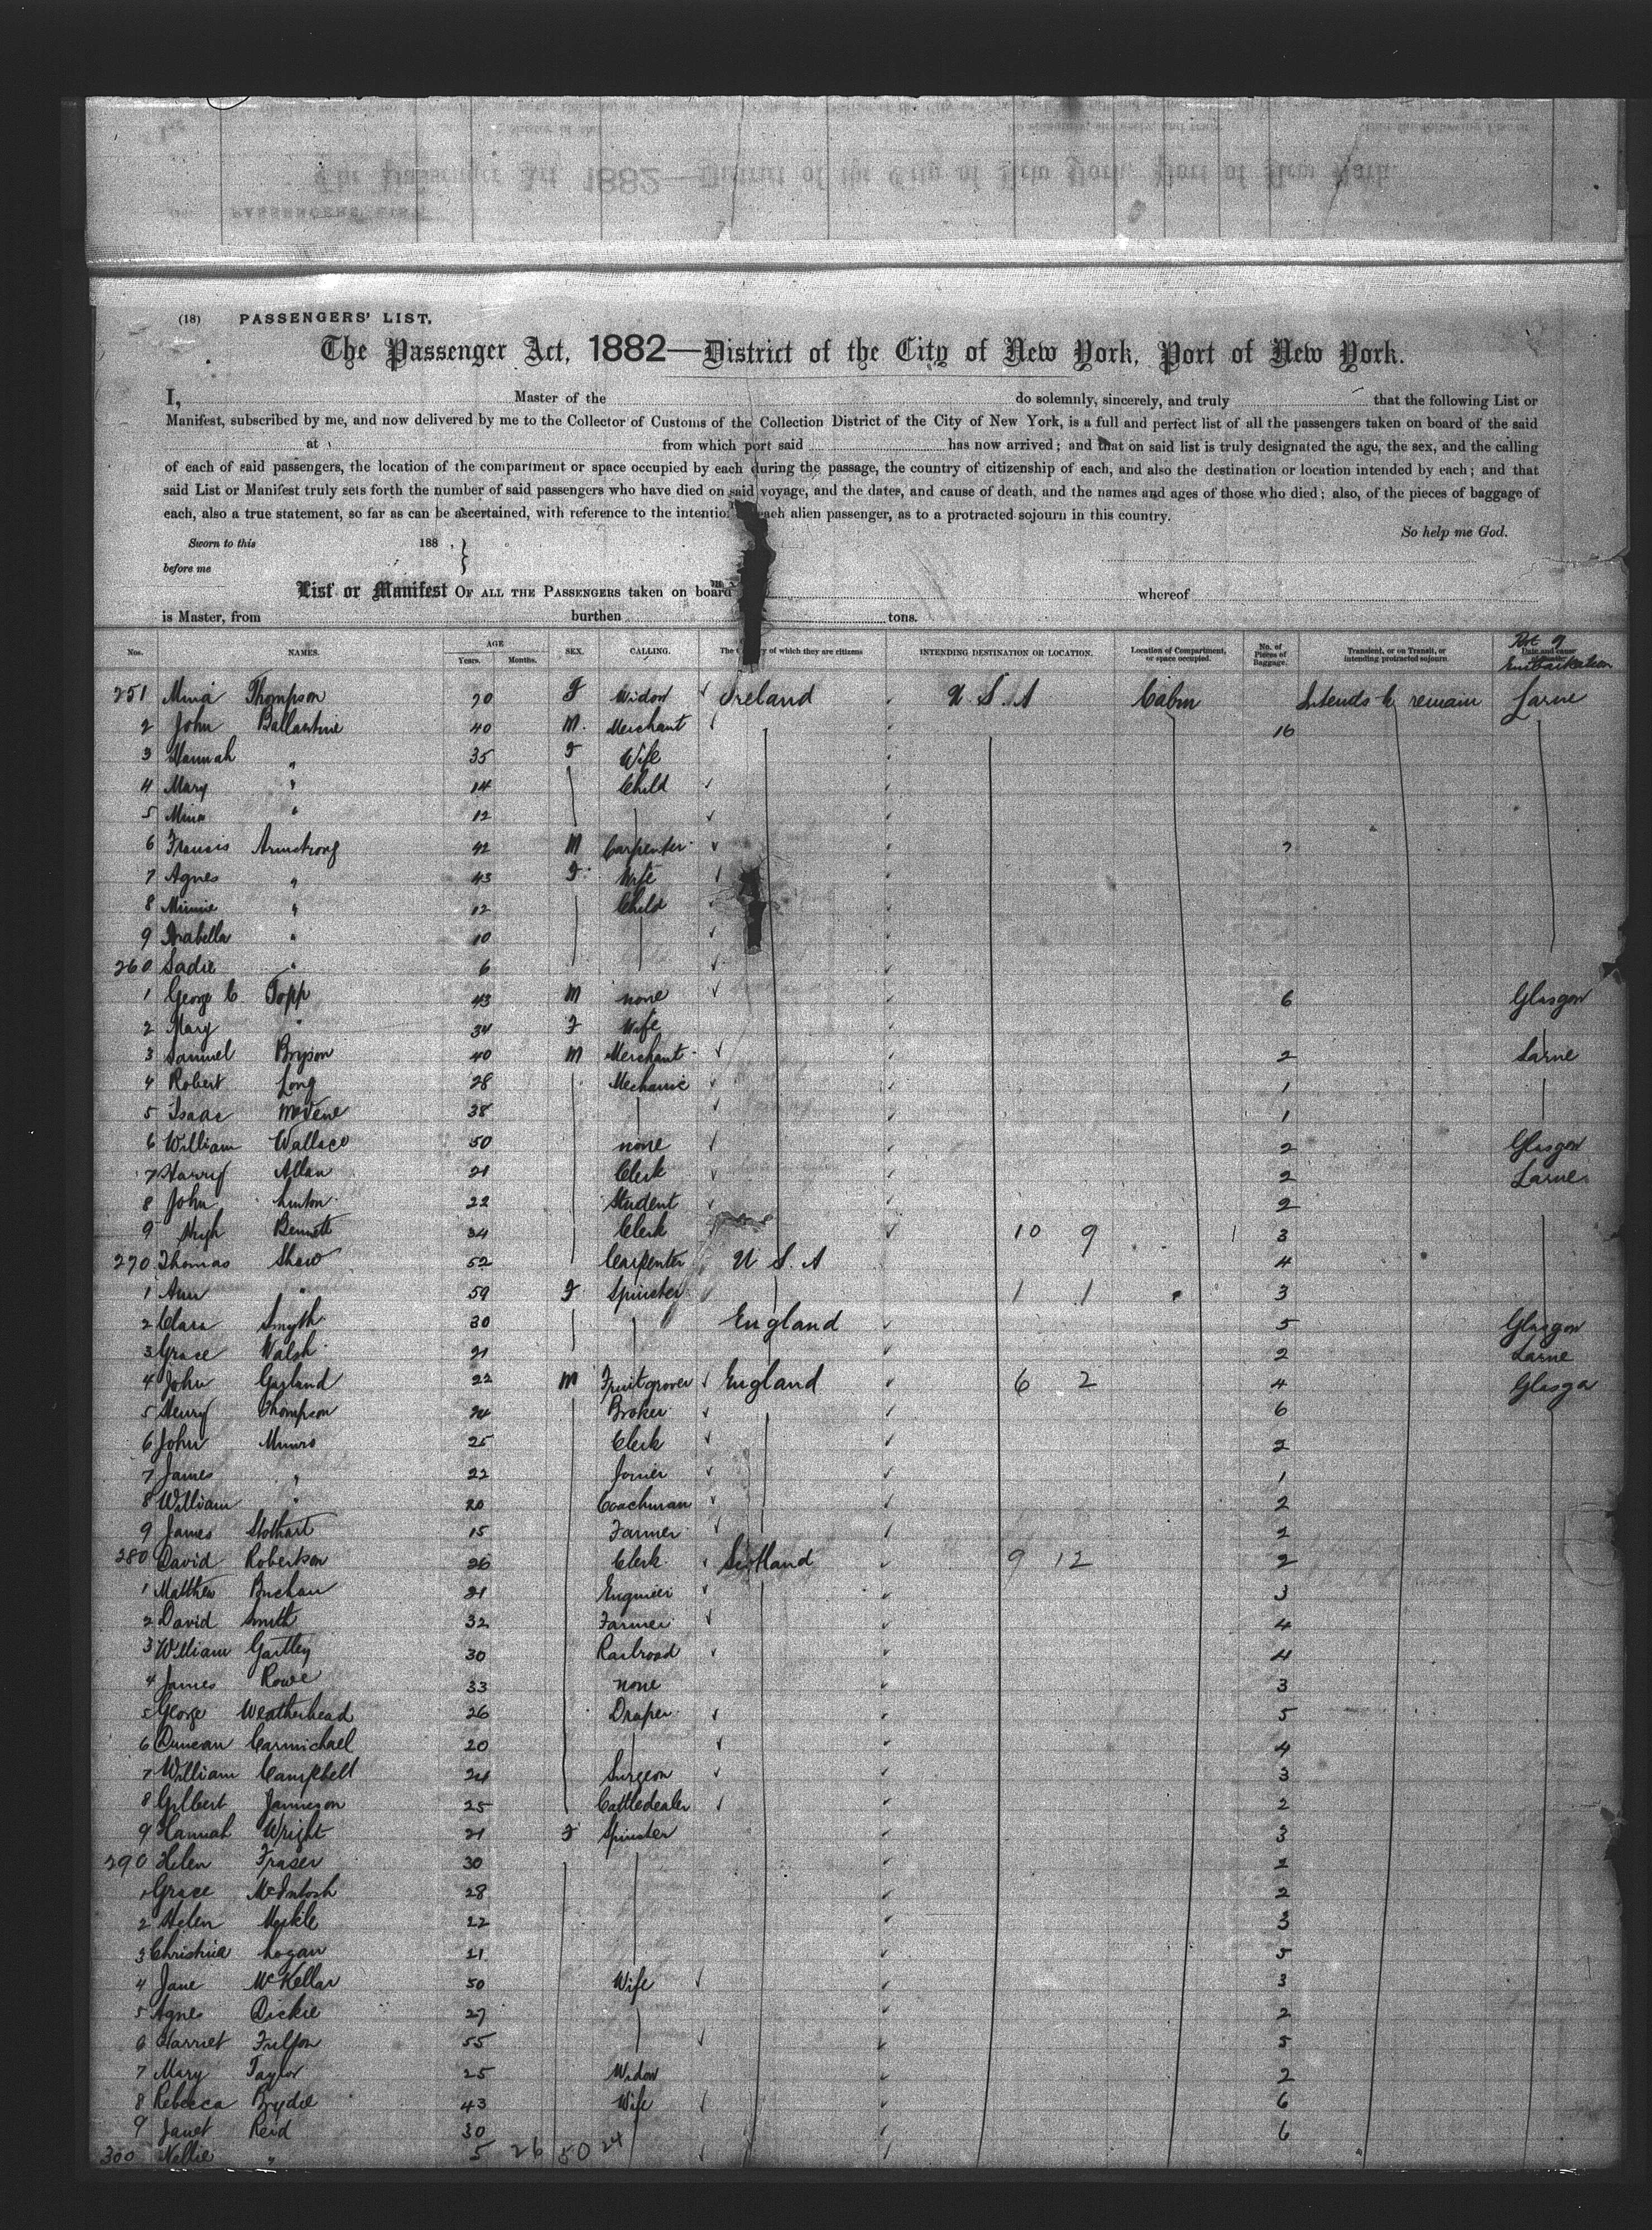 (18) PASSENGERS' LIST.
The Passenger Act, 1882—District of the City of New York, Port of New York.
I, Master of the do solemnly, sincerely, and truly that the following List or
Manifest, subscribed by me, and now delivered by me to the Collector of Customs of the Collection District of the City of New York, is a full and perfect list of all the passengers taken on board of the said
at from which port said has now arrived; and that on said list is truly designated the age, the sex, and the calling
of each of said passengers, the location of the compartment or space occupied by each during the passage, the country of citizenship of each, and also the destination or location intended by each; and that
said List or Manifest truly sets forth the number of said passengers who have died on said voyage, and the dates, and cause of death, and the names and ages of those who died; also, of the pieces of baggage of
each, also a true statement, so far as can be ascertained, with reference to the intentio each alien passenger, as to a protracted sojourn in this country.
So help me God.
Sworn to this 188 .
before me
List or Manifest OF ALL THE PASSENGERS taken on board whereof
is Master, from burthen tons.
Nos. NAMES. AGE Years. Months. SEX. CALLING. The y of which they are citizens INTENDING DESTINATION OR LOCATION. Location of Compartment, or space occupied. No. of Pieces of Baggage. Transient, or on Transit, or intending protracted sojourn Port of Embarkation
251 Mina Thompson 70 F Widow Ireland U.S.A Cabin Intends to remain Larne
2 John Ballantine 40 M. Merchant 16
3 Hannah " 35 F Wife
4 Mary " 14 Child
5 Mina " 12
6 Francis Armstrong 42 M Carpenter 7
7 Agnes " 43 F Wife
8 Minnie " 12 Child
9 Arabella " 10
260 Sadie " 6
1 George C. Topp 43 M none 6 Glasgow
2 Mary " 34 F Wife
3 Samuel Bryson 40 M Merchant 2 Larne
4 Robert Long 28 Mechanic 1
5 Isaac 38 1
6 William Wallace 50 none 2 Glasgow
7 Harry Allan 21 Clerk 2 Larne
8 John Linton 22 Student 2
9 Hugh Bennett 34 Clerk 10 9 3
270 Thomas Shaw 52 Carpenter U.S.A 4
1 Ann " 59 F Spinster 1 1 3
2 Clara Smyth 30 England 5 Glasgow
3 Grace Walsh 21 2 Larne
4 John Garland 22 M Fruitgrower England 6 2 4 Glasgo
5 Henry Thompson 24 Broker 6
6 John Munro 25 Clerk 2
7 James " 22 Joiner 1
8 William " 20 Coachman 2
9 James Stothart 15 Farmer 2
280 David Robertson 26 Clerk Scotland 9 12 2
1 Matthew Buchan 21 Engineer 3
2 David Smith 32 Farmer 4
3 William Gartley 30 Railroad 4
4 James Rowe 33 none 3
5 George Weatherhead 26 Draper 5
6 Duncan Carmichael 20 4
7 William Campbell 24 Surgeon 3
8 Gilbert Jamieson 25 Cattledealer 2
9 Hannah Wright 21 F Spinster 3
290 Helen Fraser 30 2
1 Grace McIntosh 28 2
2 Helen Meikle 22 3
3 Christina Logan 21 5
4 Jane McKellar 50 Wife 3
5 Agnes Dickie 27 2
6 Harriet 55 5
7 Mary Taylor 25 Widow 2
8 Rebecca Brydie 43 Wife 6
9 Janet Reid 30 6
300 Nellie " 5 26 50 24